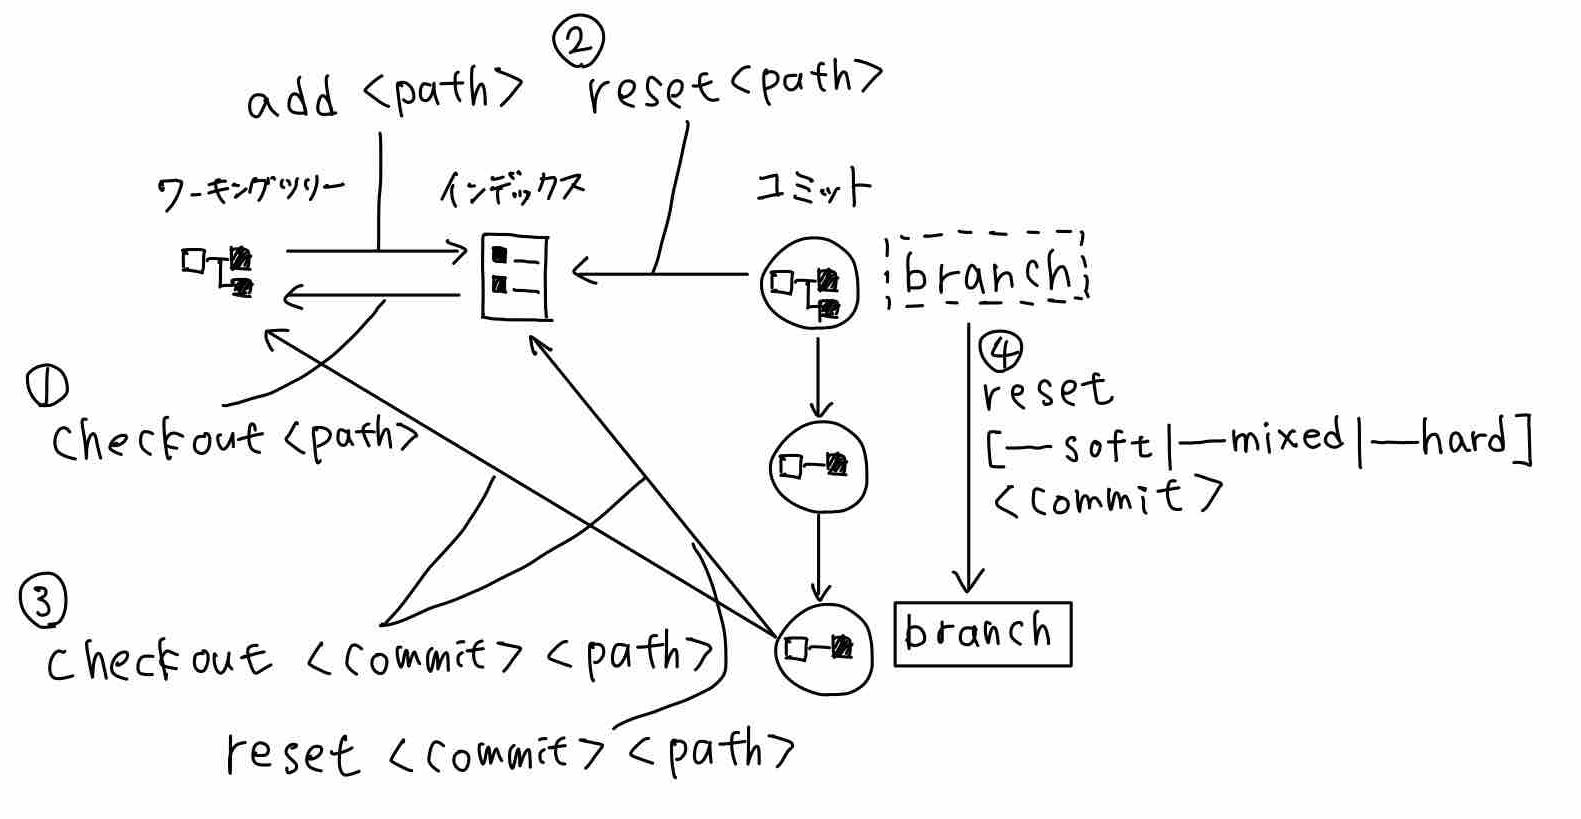 ②
add <path>
reset <path>
ワーキングツリー
インデックス
コミット
branch
①
checkout <path>
④
reset
[--soft|--mixed|--hard]
<commit>
③
checkout <commit> <path>
branch
reset <commit> <path>